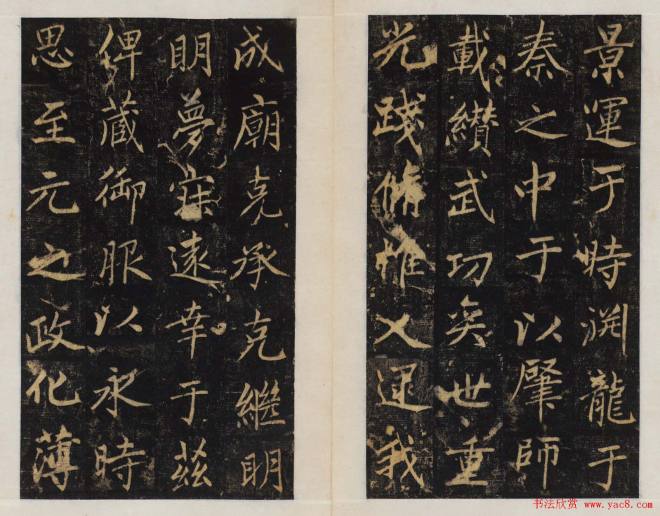 景運于時淵龍于
秦之中于以肇師
載纘武功奕世重
光踐脩惟乂逮我
成廟克承克繼明
明夢寐遠幸于茲
俾蔵御服以永時
思至元之政化薄
书法欣赏 www.yac8.com